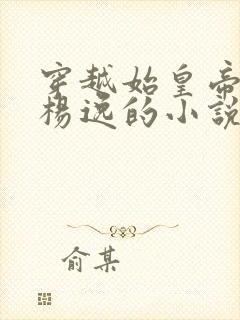 穿越始皇帝
杨逸的小說
俞某